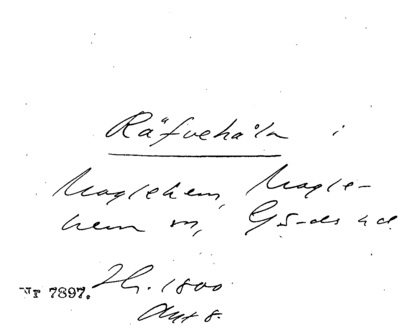 Räfvehåla i
Maglehem, Magle-
hem sn, Gärds hd.
Nr 7897. Th. 1800
Avt 8.